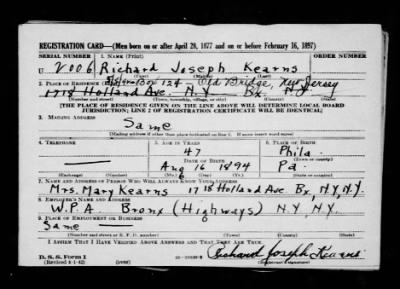 REGISTRATION CARD—(Men born on or after April 28, 1877 and on or before February 16, 1897)
SERIAL NUMBER 1. NAME (Print) ORDER NUMBER
U 2006 Richard Joseph Kearns
Box 124 - Old Bridge, New Jersey
2. PLACE OF RESIDENCE
1718 Holland Ave. N.Y Bx. N.Y
(Number and street) (Town, township, village, or city) (County) (State)
[THE PLACE OF RESIDENCE GIVEN ON THE LINE ABOVE WILL DETERMINE LOCAL BOARD
JURISDICTION; LINE 2 OF REGISTRATION CERTIFICATE WILL BE IDENTICAL]
3. MAILING ADDRESS
Same
[Mailing address if other than place indicated on line 2. If same insert word same]
4. TELEPHONE 5. AGE IN YEARS 6. PLACE OF BIRTH
47 Phila.
DATE OF BIRTH (Town or county)
Aug 16 1894 Pa.
(Mo.) (Day) (Yr.) (State or country)
7. NAME AND ADDRESS OF PERSON WHO WILL ALWAYS KNOW YOUR ADDRESS
Mrs. Mary Kearns 1718 Holland Ave Bx, N.Y, N.Y.
8. EMPLOYER'S NAME AND ADDRESS
W.P.A Bronx (Highways) N.Y, N.Y.
9. PLACE OF EMPLOYMENT OR BUSINESS
Same
(Number and street or R. F. D. number) (Town) (County) (State)
I AFFIRM THAT I HAVE VERIFIED ABOVE ANSWERS AND THAT THEY ARE TRUE.
D. S. S. Form 1
(Revised 4-1-42) (over)
Richard Joseph Kearns